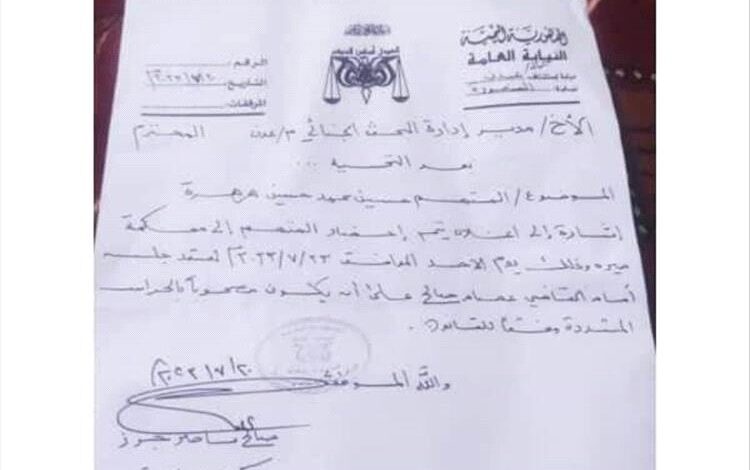 الجمهورية اليمنية
النيابة العامة
نيابة استئناف
نيابة
العدل أساس الحكم
الرقم
التاريخ
المرفقات
الأخ / مدير إدارة البحث الجنائي م/عدن المحترم
بعد التحية ...
الموضوع / المتهم حسين محمد حسين هرهرة
إشارة إلى أعلاه يتم إحضار المتهم إلى محكمة
صيره وذلك يوم الاحد الموافق ٢٠٢٣/٧/٢٣م لعقد جلسه
أمام القاضي عصام صالح على أن يكون مصحوباً بالحراسه
المشددة وفقاً للقانون .
والله الموفق
٢٠٢٣/٧/٢٠م
صالح ناصر